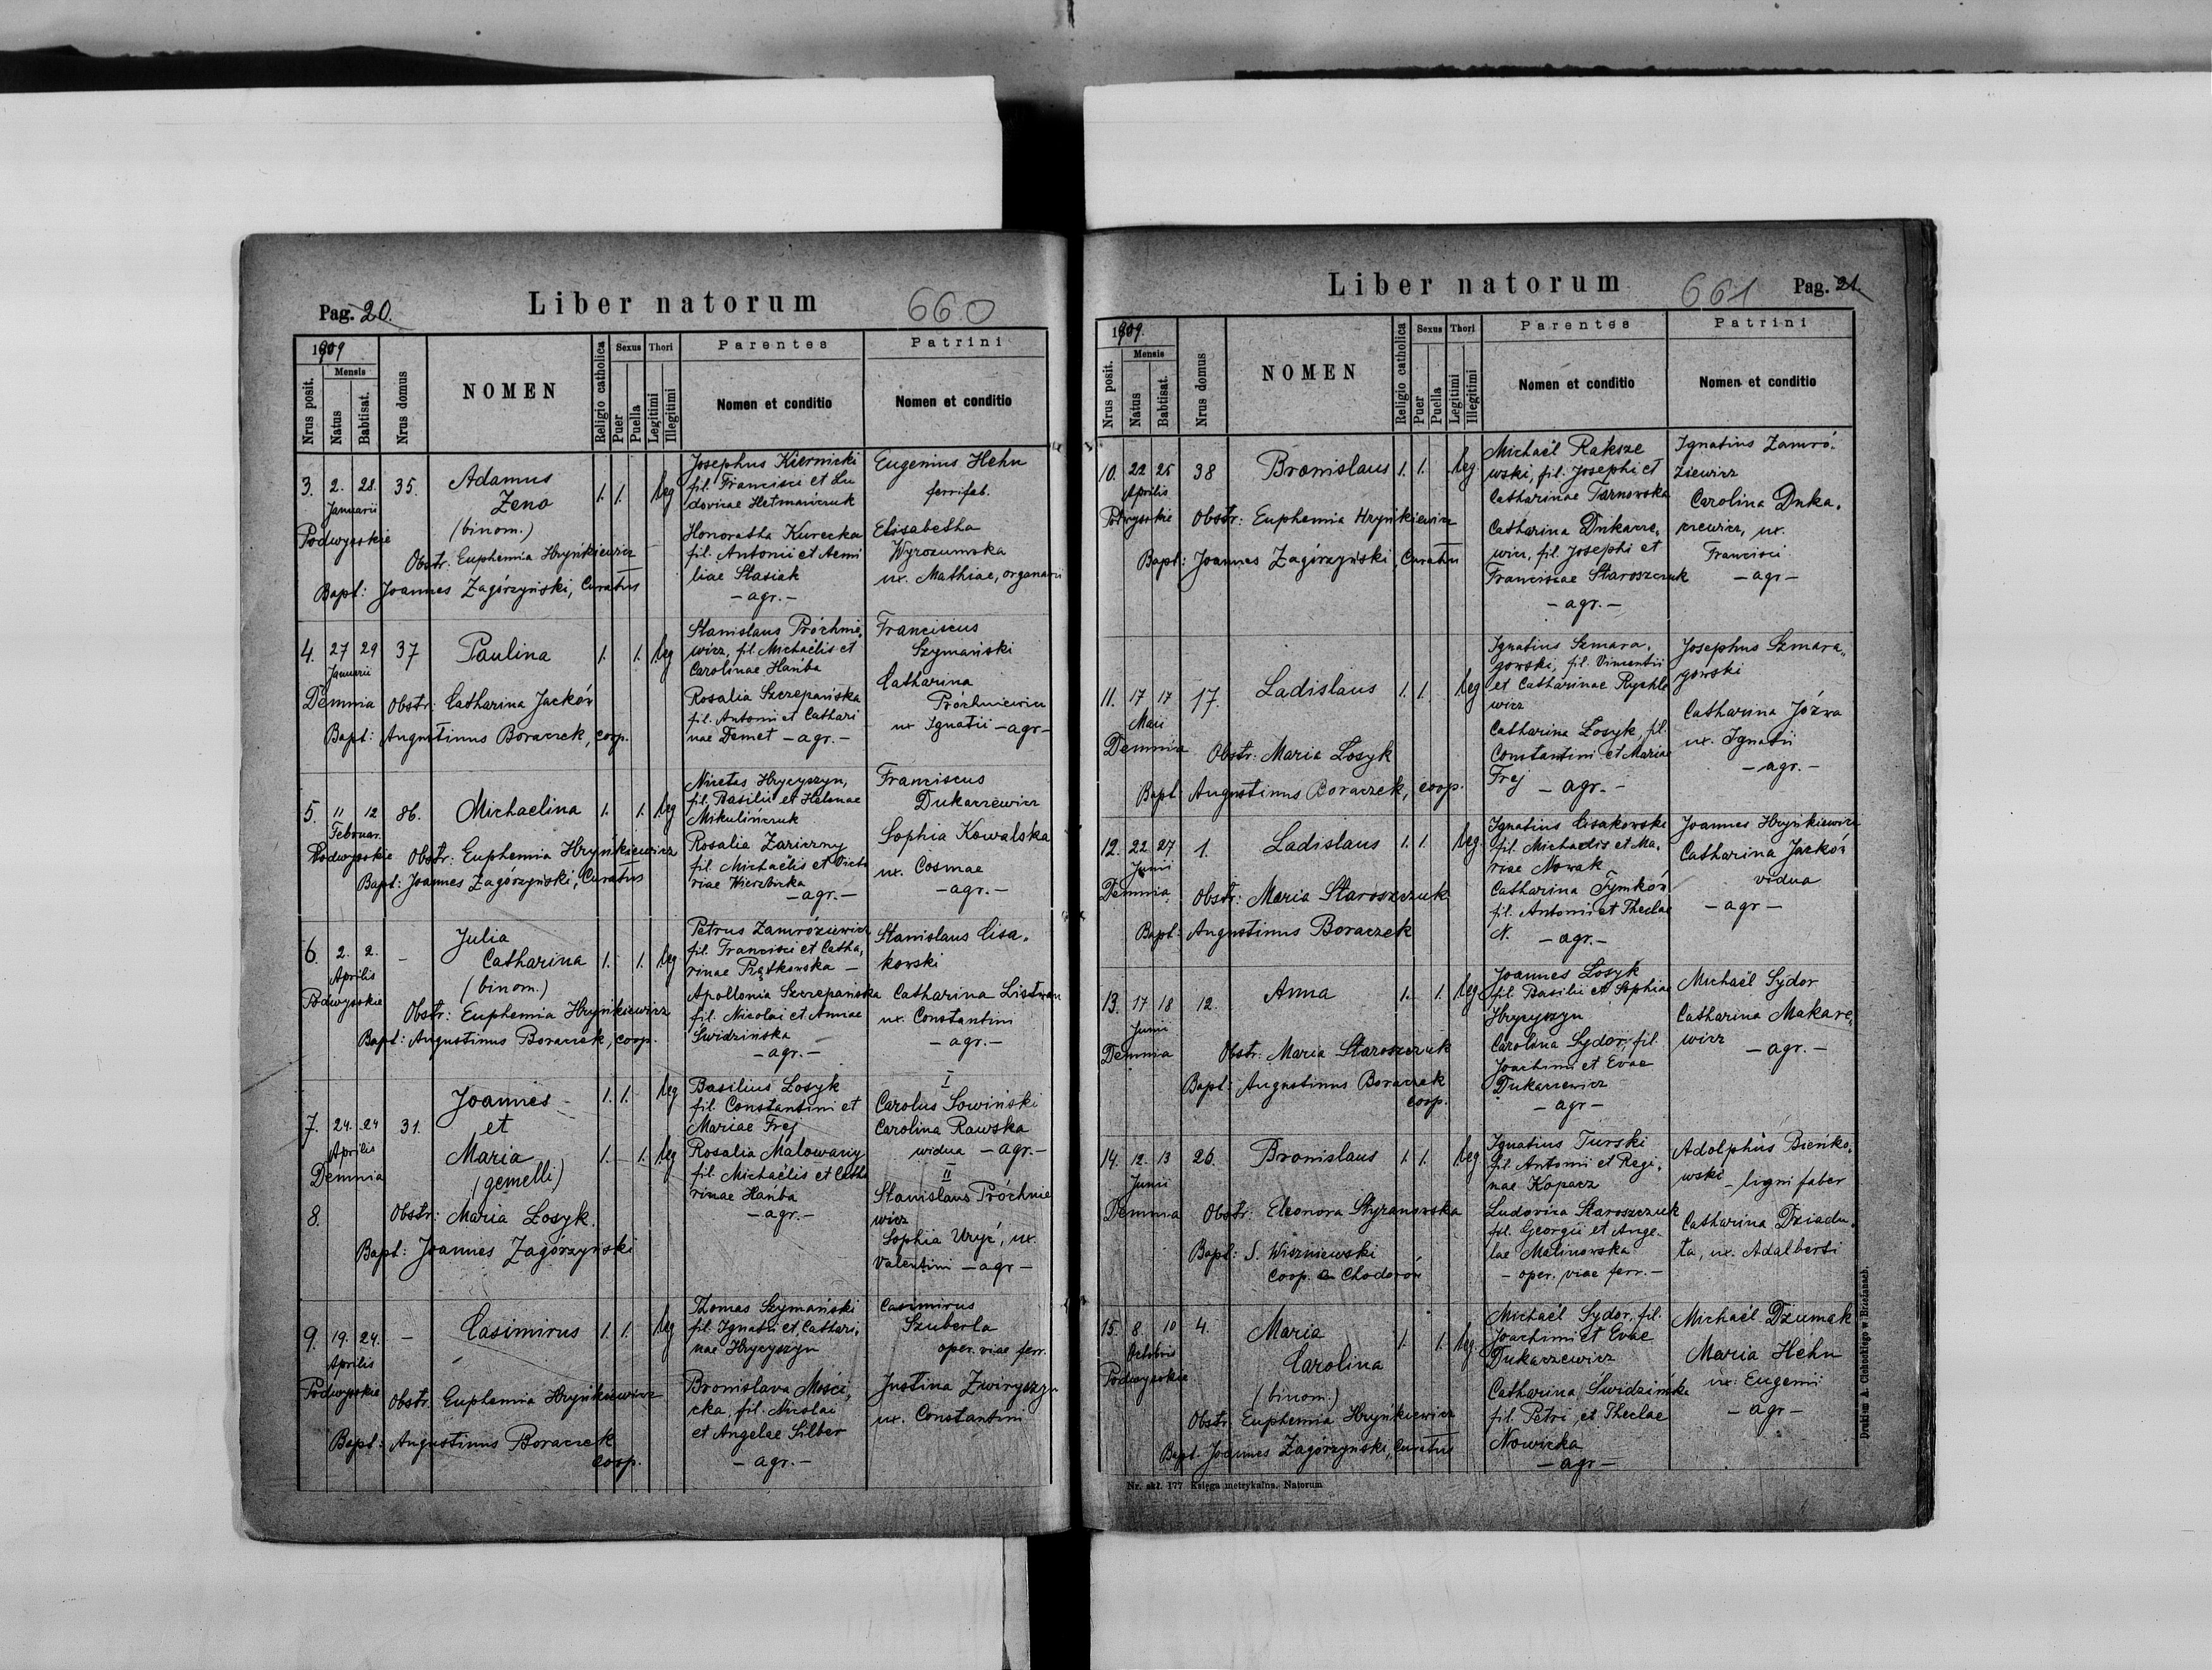 Pag. 20.
Liber natorum
660
1909
Nrus posit.
Mensis
Natus
Babtisat.
Nrus domus
NOMEN
Religio catholica
Sexus
Puer
Puella
Thori
Legitimi
Illegitimi
Parentes
Nomen et conditio
Patrini
Nomen et conditio
3. 2. 28. 35. Adamus
Januarii
Zeno
(binom.)
1. 1. leg
Podwysokie
Obstr. Euphemia Hryńkiewicz
Bapt: Joannes Zagórzyński, Curatus
Josephus Kiernicki
fil. Francisci et Lu
dovicae Hetmańczuk
Honoratha Kurecka
fil. Antonii et Aemi
liae Stasiak
- agr. -
Eugenius Hehn
ferrifab.
Elisabetha
Wyrozumska
ux. Mathiae, organarii
4. 27 29 37 Paulina 1. 1. leg
Januarii
Demnia Obstr: Catharina Jacków
Bapt: Augustinus Boraczek, coop.
Stanislaus Próchnie,
wicz, fil. Michaëlis et
Carolinae Hańba
Rosalia Szczepańska
fil. Antonii et Cathari
nae Demet - agr. -
Franciscus
Szymański
Catharina
Próchniewicz
ux Ignatii - agr -
5. 11 12 86. Michaelina 1. 1. leg
Februar.
Podwysokie Obstr: Euphemia Hryńkiewicz
Bapt: Joannes Zagórzyński, Curatus
Nicetas Hrycyszyn,
fil. Basilii et Helenae
Mikulińczuk
Rosalia Zariczny
fil. Michaëlis et Victo
riae Wierzbicka
- agr. -
Franciscus
Dukaczewicz
Sophia Kowalska
ux. Cosmae
- agr. -
6. 2. 2. - Julia
Catharina
(binom.)
1. 1. leg
Aprilis
Podwysokie
Obstr: Euphemia Hryńkiewicz
Bapt: Augustinus Boraczek, coop.
Petrus Zamróziewicz
fil. Francisci et Catha,
rinae Piątkowska -
Apollonia Szczepańska
fil. Nicolai et Annae
Swidzińska
- agr. -
Stanislaus Lisa,
kowski
Catharina Listwan
ux. Constantini
- agr. -
7. 24. 24 31. Joannes
et
Maria
(gemelli)
1. 1. leg
1. 1. leg
Aprilis
Demnia
8. Obstr: Maria Łosyk.
Bapt: Joannes Zagórzyński
Basilius Łosyk
fil. Constantini et
Mariae Frej
Rosalia Malowany
fil. Michaëlis et Catha
rinae Hańba
- agr. -
I
Carolus Sowiński
Carolina Rawska
widua - agr. -
II
Stanislaus Próchnie
wicz
Sophia Uryć, ux.
Valentini - agr -
9. 19. 24. - Casimirus 1. 1. leg
Aprilis
Podwysokie
Obstr. Euphemia Hryńkiewicz
Bapt: Augustinus Boraczek
coop.
Thomas Szymański
fil. Ignatii et Cathari,
nae Hrycyszyn
Bronislava Mości,
cka, fil. Nicolai
et Angelae Silber
- agr. -
Casimirus
Szuberla
oper. viae ferr.
Justina Zwiryszyn
ux. Constantini
Liber natorum
661
Pag. 21.
1909.
Nrus posit.
Mensis
Natus
Babtisat.
Nrus domus
NOMEN
Religio catholica
Sexus
Puer
Puella
Thori
Legitimi
Illegitimi
Parentes
Nomen et conditio
Patrini
Nomen et conditio
10. 22 25 38 Bronislaus 1. 1. leg.
Aprilis
Podwysokie Obstr: Euphemia Hryńkiewicz
Bapt: Joannes Zagórzyński, Curatus
Michaël Raksze
wski, fil. Josephi et
Catharinae Tarnowska
Catharina Dukacze,
wicz, fil. Josephi et
Franciscae Staroszczuk
- agr. -
Ignatius Zamró,
ziewicz
Carolina Duka,
czewicz, ux.
Francisci
- agr -
11. 17 17 17. Ladislaus 1. 1. leg
Maii
Demnia Obstr: Maria Łosyk
Bapt: Augustinus Boraczek, coop.
Ignatius Szmara,
gowski, fil. Vincentii
et Catharinae Rychle
wicz
Catharina Łosyk, fil.
Constantini et Mariae
Frej - agr. -
Josephus Szmara,,
gowski
Catharina Józwa
ux. Ignatii
- agr. -
12. 22 27 1. Ladislaus 1. 1. leg
Junii
Demnia Obstr: Maria Staroszczuk
Bapt: Augustinus Boraczek
Ignatius Lisakowski
fil. Michaelis et Ma,
riae Nowak
Catharina Tymków
fil. Antonii et Theclae
N. - agr. -
Joannes Hryńkiewicz
Catharina Jacków
vidua
- agr -
13. 17 18 12. Anna 1. 1. leg
Junii
Demnia Obstr: Maria Staroszczuk
Bapt: Augustinus Boraczek
coop.
Joannes Łosyk
fil. Basilii et Sophiae
Hrycyszyn
Carolina Sydor, fil.
Joachimi et Evae
Dukaczewicz
- agr -
Michaël Sydor
Catharina Makare,
wicz - agr. -
14. 12. 13 26. Bronislaus 1. 1. leg
Junii
Demnia Obstr: Eleonora Styranowska
Bapt: S. Wiszniewski
coop. Chodorów
Ignatius Turski
fil. Antonii et Regi,
nae Kopacz
Ludovica Staroszczuk
fil. Georgii et Ange-
lae Malinowska
- oper. viae ferr. -
Adolphus Bieńko,
wski - ligni faber
Catharina Dziadu,
ta, ux. Adalberti
15. 8. 10 4. Maria
Carolina
(binom.)
1. 1. leg
Octobris
Podwysokie
Obstr. Euphemia Hryńkiewicz
Bapt. Joannes Zagórzyński, Curatus
Michaël Sydor, fil.
Joachimi et Evae
Dukaczewicz
Catharina Swidzińska
fil. Petri et Theclae
Nowicka
- agr -
Michaël Dżumak
Maria Hehn
ux. Eugenii
- agr -
Nr. skł. 177 Księga metrykalna. Natorum
Drukiem A. Cichockiego w Brzeżanach.